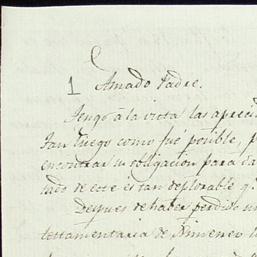 1 Amado Padre.
Tengo á la vista las apreci
Tan luego como fué posible, p
encontrar su obligacion para da
tado de este es tan deplorable q.
Despues de haber perdido u
testamentaria de Ximenez l